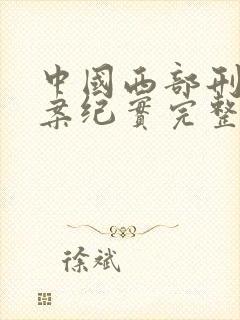 中國西部刑
案纪實完整
徐斌